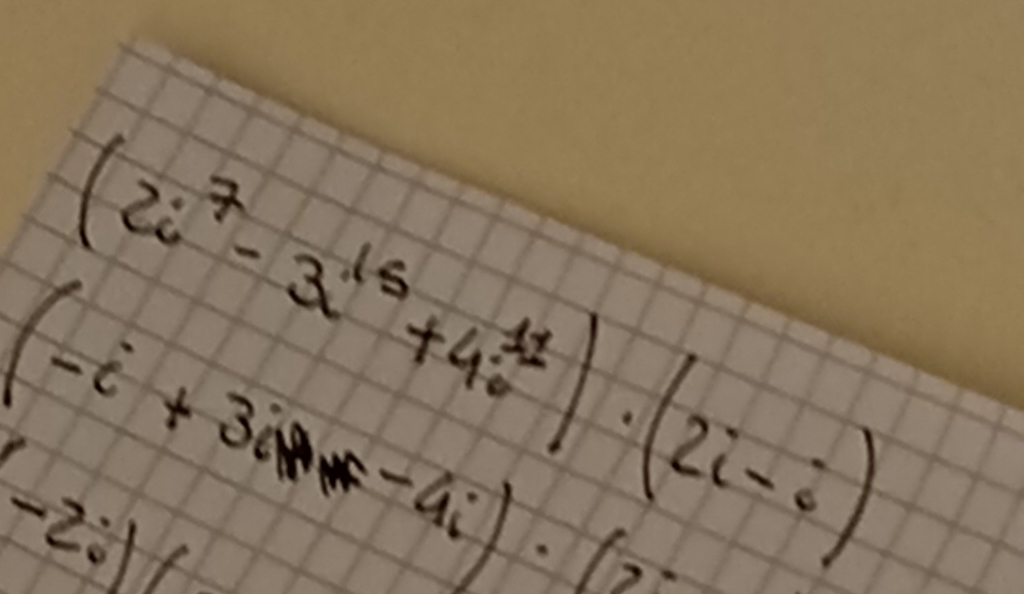 (2i⁷ - 3i¹⁵ + 4i¹¹) · (2i - i)
(-i + 3i - 4i) · (2i
-2i) (